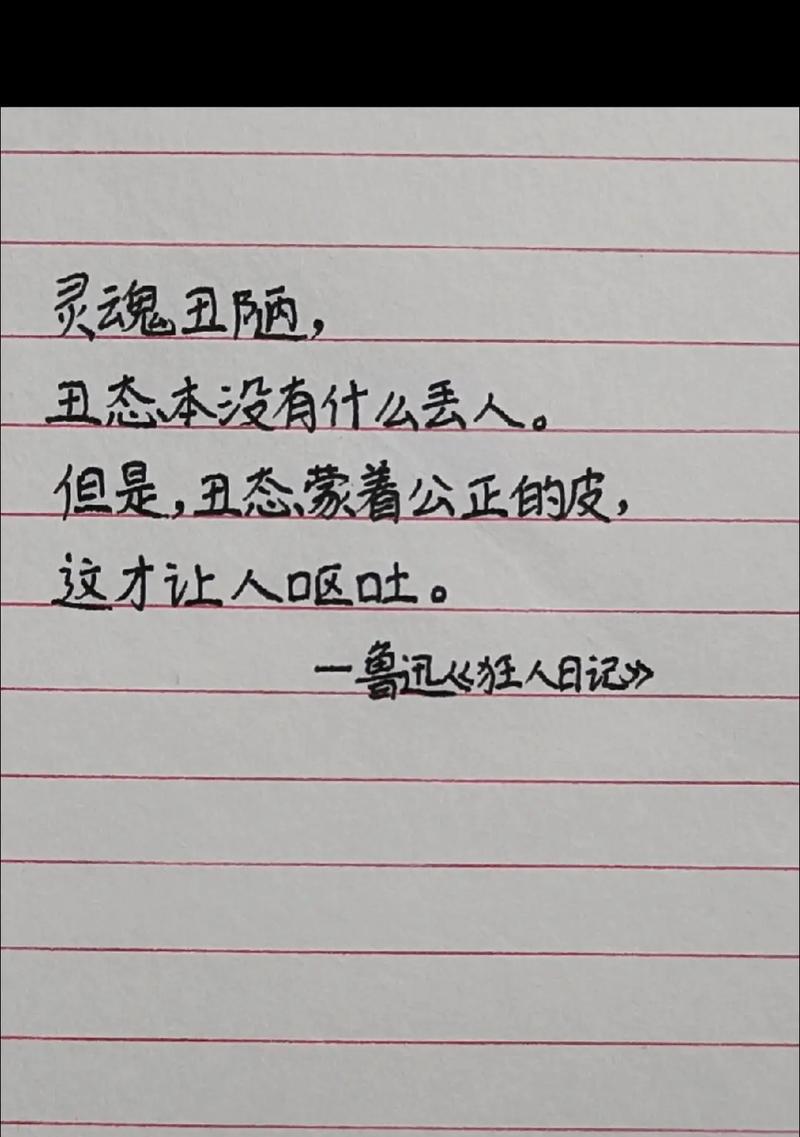 灵魂丑陋，
丑态本没有什么丢人。
但是，丑态蒙着公正的皮，
这才让人呕吐。
—鲁迅《狂人日记》